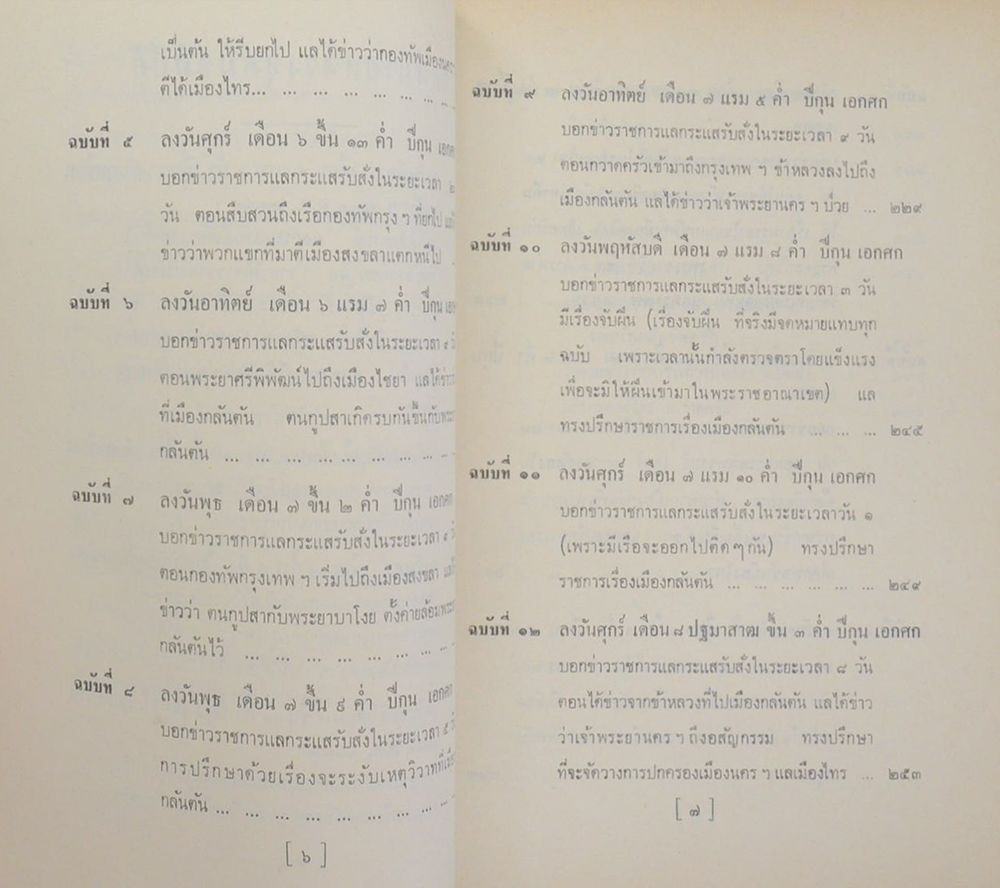 เป็นต้น ให้รีบยกไป แลได้ข่าวว่ากองทัพเมืองนคร
ตีได้เมืองไทร... ... ... ... ... ... ... ...
ฉบับที่ ๕ ลงวันศุกร์ เดือน ๖ ขึ้น ๑๓ ค่ำ ปีกุน เอกศก
บอกข่าวราชการแลกระแสรับสั่งในระยะเวลา ๒
วัน ตอนสืบสวนถึงเรือกองทัพกรุง ฯ ที่ยกไป แลได้
ข่าวว่าพวกแขกที่มาตีเมืองสงขลาแตกหนีไป ..
ฉบับที่ ๖ ลงวันอาทิตย์ เดือน ๖ แรม ๗ ค่ำ ปีกุน เอกศก
บอกข่าวราชการแลกระแสรับสั่งในระยะเวลา ๙ วัน
ตอนพระยาศรีพิพัฒน์ไปถึงเมืองไชยา แลได้ข่าว
ที่เมืองกลันตัน ตนกูปสาเกิดรบกันขึ้นกับพระยา
กลันตัน ... ... ... ... ... ... ... ... ...
ฉบับที่ ๗ ลงวันพุธ เดือน ๗ ขึ้น ๒ ค่ำ ปีกุน เอกศก
บอกข่าวราชการแลกระแสรับสั่งในระยะเวลา ๙ วัน
ตอนกองทัพกรุงเทพ ฯ เริ่มไปถึงเมืองสงขลา แลได้
ข่าวว่า ตนกูปสากับพระยาบาโงย ตั้งค่ายล้อมพระยา
กลันตันไว้ ... ... ... ... ... ... ... ...
ฉบับที่ ๘ ลงวันพุธ เดือน ๗ ขึ้น ๙ ค่ำ ปีกุน เอกศก
บอกข่าวราชการแลกระแสรับสั่งในระยะเวลา ๕ วัน
การปรึกษาด้วยเรื่องจะระงับเหตุวิวาทที่เมือง
กลันตัน ... ... ... ... ... ... ... ... ...
[ ๖ ]
ฉบับที่ ๙ ลงวันอาทิตย์ เดือน ๗ แรม ๕ ค่ำ ปีกุน เอกศก
บอกข่าวราชการแลกระแสรับสั่งในระยะเวลา ๙ วัน
ตอนกวาดครัวเข้ามาถึงกรุงเทพ ฯ ข้าหลวงลงไปถึง
เมืองกลันตัน แลได้ข่าวว่าเจ้าพระยานคร ฯ ป่วย ... ๒๒๙
ฉบับที่ ๑๐ ลงวันพฤหัสบดี เดือน ๗ แรม ๘ ค่ำ ปีกุน เอกศก
บอกข่าวราชการแลกระแสรับสั่งในระยะเวลา ๓ วัน
มีเรื่องจับฝิ่น (เรื่องจับฝิ่น ที่จริงมีจดหมายแทบทุก
ฉบับ เพราะเวลานั้นกำลังตรวจตราโดยแข็งแรง
เพื่อจะมิให้ฝิ่นเข้ามาในพระราชอาณาเขต) แล
ทรงปรึกษาราชการเรื่องเมืองกลันตัน ... ... ... ๒๔๕
ฉบับที่ ๑๑ ลงวันศุกร์ เดือน ๗ แรม ๑๐ ค่ำ ปีกุน เอกศก
บอกข่าวราชการแลกระแสรับสั่งในระยะเวลาวัน ๑
(เพราะมีเรือจะออกไปติด ๆ กัน) ทรงปรึกษา
ราชการเรื่องเมืองกลันตัน ... ... ... ... ... ... ๒๔๙
ฉบับที่ ๑๒ ลงวันศุกร์ เดือน ๘ ปฐมาสาฒ ขึ้น ๓ ค่ำ ปีกุน เอกศก
บอกข่าวราชการแลกระแสรับสั่งในระยะเวลา ๘ วัน
ตอนได้ข่าวจากข้าหลวงที่ไปเมืองกลันตัน แลได้ข่าว
ว่าเจ้าพระยานคร ฯ ถึงอสัญกรรม ทรงปรึกษา
ที่จะจัดวางการปกครองเมืองนคร ฯ แลเมืองไทร ... ๒๕๓
[ ๗ ]